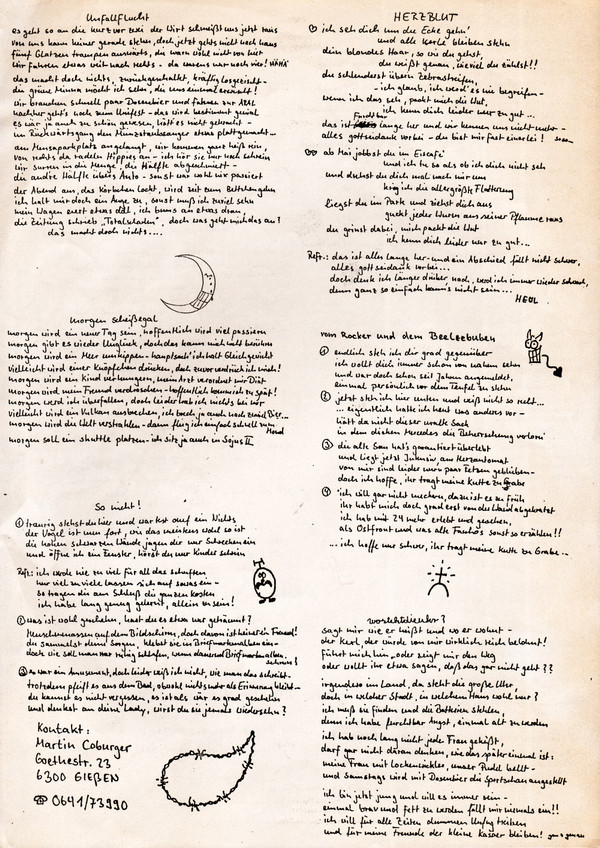 Unfallflucht
es geht so an die kurz vor zwei der Wirt schmeißt uns jetzt raus
von uns kann keiner gerade stehn, doch jetzt gehts noch nach haus
fünf Glatzen trampen auswärts, die warn wohl nicht von hier
wir fahren etwas weit nach rechts - da warens nur noch vier! HÄHÄ
das macht doch nichts, zurückgeschaltet, kräftig losgezischt -
die grüne Minna möcht ich sehn, die uns einmal erwischt!
wir brauchen schnell paar Dosenbier und fahren zur ARAL
nachher geht's noch zum Unifest - das wird bestimmt genial
es wär ja auch zu schön gewesen, hätt es nicht gekracht -
im Rückwärtsgang den Münzstaubsauger etwas plattgemacht...
am Mensaparkplatz angelangt, wir kommen ganz heiß rein,
von rechts da radeln Hippies an - ich hör sie nur noch schrein
wir surfen in die Menge, die Hälfte abgeschmiert -
die andre Hälfte übers Auto - sonst war wohl nix passiert
der Abend aus, das Körbchen lockt, wird zeit zum Bettchengehn
ich halt mir doch ein Auge zu, sonst muß ich zuviel sehn
mein Wagen eiert etwas daß, ich bums an etwas dran,
die Zeitung schrieb "Totalschaden", doch was geht mich das an?
das macht doch nichts....
morgen scheißegal
morgen wird ein neuer Tag sein, hoffentlich wird viel passieren
morgen gibt es wieder Unglück, doch das kann mich nicht berühren
morgen wird ein Meer umkippen - hauptsach' ich halt Gleichgewicht
vielleicht wird einer Knöpfchen drücken, doch zuvor verdrück ich mich!
morgen wird ein Kind verhungern, mein Arzt verordnet mir Diät
morgen wird mein Freund verdroschen - hoffentlich komm ich zu spät!
morgen werd ich überfallen, doch leider hab ich nichts bei mir
vielleicht wird ein Vulkan ausbrechen, ich koch ja auch noch zuviel
morgen wird die Welt verstrahlen - dann flieg ich einfach schnell zum Mond
morgen soll ein shuttle platzen - ich sitz ja auch in Sojus II
So nicht!
① traurig stehst du hier und warst auf ein Nichts
der Vogel ist nun fort, wie das meistens wohl so ist
die hohen schwarzen Wände jagen dir nur Schrecken ein
und öffne ich ein Fenster, hörst du nur Kinder schrein
Refr.: ich werde nie zu viel für all das schuften
nur viel zu viele lassen sich auf sowas ein -
so tragen die am Schluß die ganzen Kosten
ich habe lang genug gelernt, allein zu sein!
② was ist wohl geschehen, hast du es etwa nur geträumt?
Menschenmassen auf dem Bildschirm, doch davon ist keiner ein Freund!
du sammelst deine Sorgen, klebst sie in Briefmarkenalben ein -
doch wie soll man nur ruhig schlafen, wenn dauernd Briefmarkenalben schrein!
③ es war ein Amusement, doch leider weiß ich nicht, wie man das schreibt -
trotzdem pfeift es aus dem Bad, obwohl nichts mehr als Erinnerung bleibt -
du kannst es nicht vergessen, es ist als wär es grad geschehn
und denkst an deine Lady, wirst du sie jemals wiedersehn?
Kontakt:
Martin Coburger
Goethestr. 23
6300 GIEßEN
☎ 0641/73990
HERZBLUT
ich seh dich um die Ecke gehn'
und alle Kerle bleiben stehn
dein blondes Haar, so wie du gehst,
du weißt genau, wieviel du zählst!!
du schlenderst übern Zebrastreifen,
- ich glaub, ich werd' es nie begreifen -
wenn ich das seh, packt mich die Wut,
ich kenn dich leider nur zu gut...
das ist lange her und wir kennen uns nicht mehr -
alles gottseidank vorbei - du bist mir fast einerlei!
ab Mai jobbst du im Eiscafé
und ich tu so als ob ich dich nicht seh
und duhst du dich mal nach mir um
krieg ich die allergrößte Flatterung
liegst du im Park und ziehst dich aus
guckt jeder Wurm aus seiner Pflaume raus
du grinst dabei, mich packt die Wut
ich kenn dich leider nur zu gut...
Refr.: das ist alles lange her - und ein Abschied fällt nicht schwer,
alles gottseidank vorbei...
doch denk ich länger drüber nach, werd ich immer wieder schwach,
denn ganz so einfach kann's nicht sein...
HEUL
vom Rocker und dem Beelzebuben
① endlich steh ich dir grad gegenüber
ich wollt dich immer schon von nahen sehn
und war doch schon seit Jahren angemeldet,
einmal persönlich vor dem Teufel zu stehn
② jetzt steh ich hier unten und weiß nicht so recht...
... eigentlich hatte ich heut was anderes vor -
hätt da nicht dieser uralte Sack
in dem dicken Mercedes die Beherrschung verlorn
③ die alte Sau hat's garantiert überlebt
und liegt jetzt Intensiv, am Herzautomat
von mir sind leider nur paar Fetzen geblieben -
doch ich hoffe, ihr tragt meine Kutte zu Grabe
④ ich will gar nicht meckern, dazu ist es zu früh
ihr habt mich doch grad erst von der Wand abgekratzt
ich hab mit 24 mehr erlebt und gesehen,
als Ostfront und was alte Faschos sonst so erzählen!!
... ich hoffe nur schwer, ihr tragt meine Kutte zu Grabe...
sagt mir wie er heißt und wo er wohnt -
der Kerl, der würde von mir wirklich reich belohnt!
führt mich hin - oder zeigt mir den Weg
oder wollt ihr etwa sagen, daß das gar nicht geht??
irgendwo im Land, da steht die große Uhr
doch in welcher Stadt, in welchem Haus wohl nur?
ich muß sie finden und die Batterien stehlen,
denn ich habe furchtbar Angst, einmal alt zu werden
ich hab noch lang nicht jede Frau geküßt,
darf gar nicht daran denken, wie das später einmal ist:
meine Frau mit Lockenwickler, unser Pudel bellt -
und Samstags wird mit Dosenbier die Sportschau angestellt
ich bin jetzt jung und will es immer sein -
einmal brav und fett zu werden fällt mir niemals ein!!
ich will für alle Zeiten dummen Unfug treiben
und für meine Freunde der kleine Kasper bleiben!